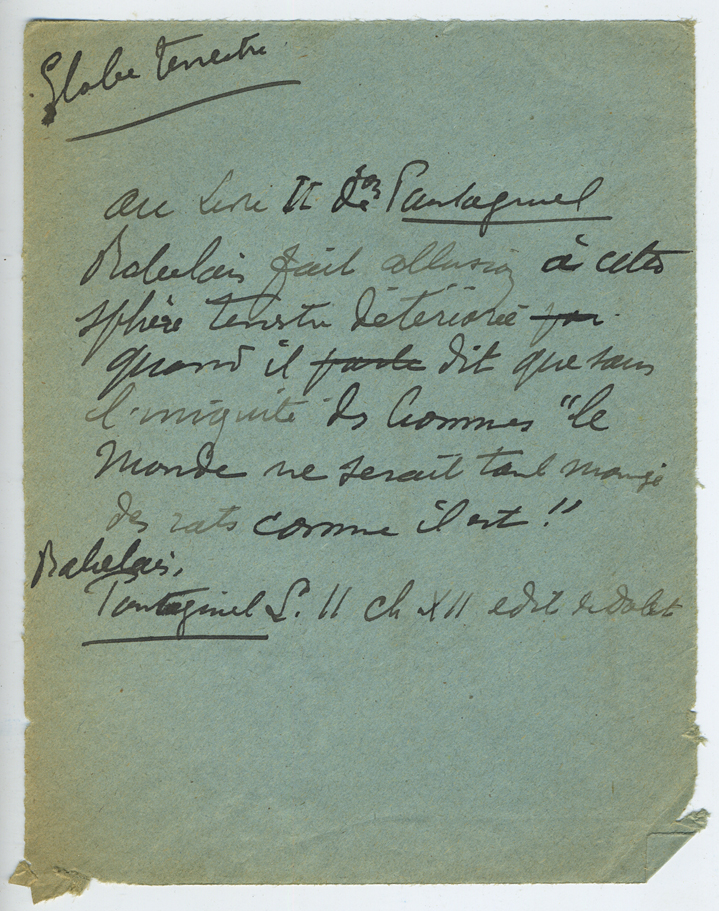 Globe terrestre
au Livre II de Pantagruel
Rabelais fait allusion à cette
sphère terrestre détériorée par
quand il parle dit que sans
l'iniquité des hommes "le
Monde ne serait tant mangé
des rats comme il est!"
Rabelais,
Pantagruel L. II ch XII edit de Dolet